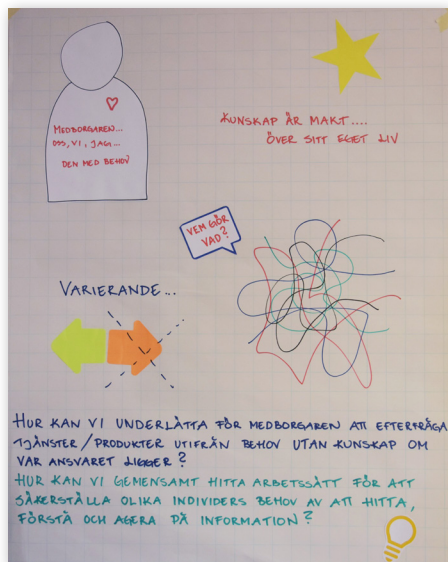 KUNSKAP ÄR MAKT....
ÖVER SITT EGET LIV
MEDBORGAREN...
OSS, VI, JAG...
DEN MED BEHOV
VEM GÖR
VAD?
VARIERANDE...
HUR KAN VI UNDERLÄTTA FÖR MEDBORGAREN ATT EFTERFRÅGA
TJÄNSTER/PRODUKTER UTIFRÅN BEHOV UTAN KUNSKAP OM
VAR ANSVARET LIGGER?
HUR KAN VI GEMENSAMT HITTA ARBETSSÄTT FÖR ATT
SÄKERSTÄLLA OLIKA INDIVIDERS BEHOV AV ATT HITTA,
FÖRSTÅ OCH AGERA PÅ INFORMATION?